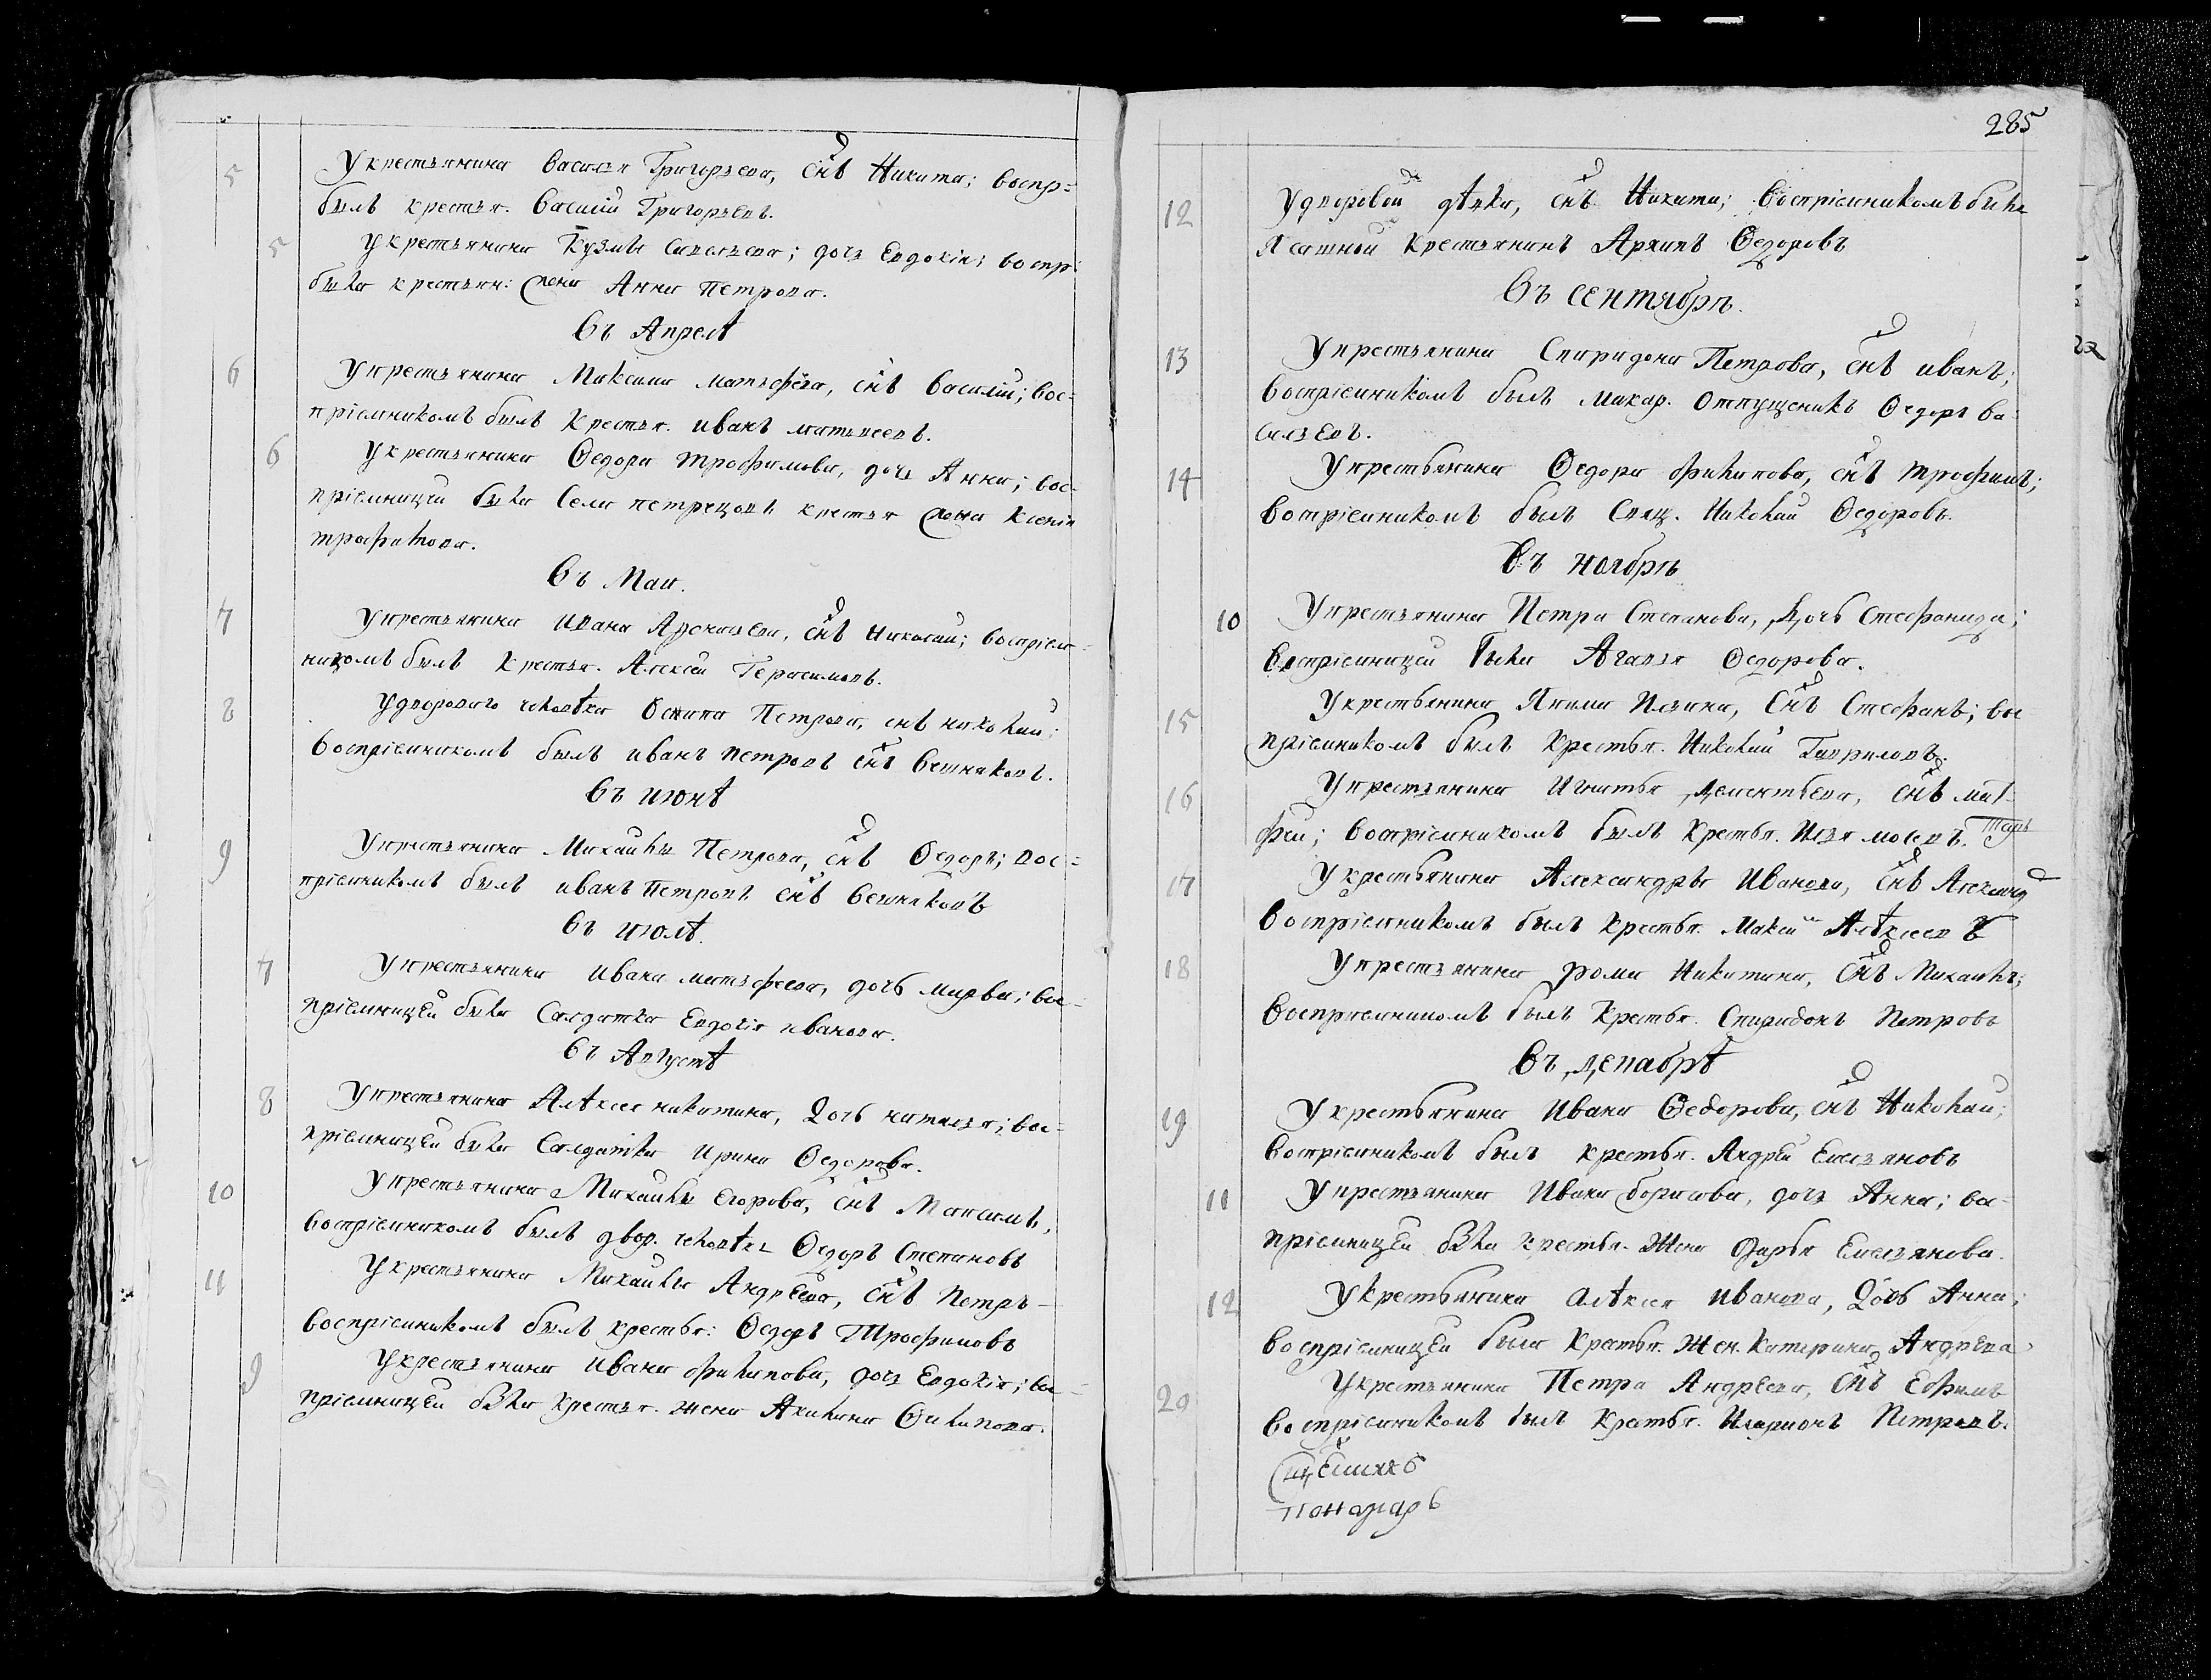 5 У крестьянина Василья Григорьева, снъ Никита; воспр=
былъ крестья. Василий Григорьевъ.
5 У крестьянина Кузмы Савельева; дочь Евдокія; воспр:
была крестьян: жена Анна Петрова.
Въ Апрелѣ
6 У крестьянина Максима матьфѣева, снъ Василій; вос-
пріемникомъ былъ крестья. иванъ матьвеевъ.
6 У крестьянина Ѳедора трофимова, дочь Анна; вос-
пріемницей была села петрецовъ крестья жена Ксенія
трофимова.
Въ Маи.
7 У крестьянина Ивана , снъ Николай; воспріем-
никомъ былъ крестья. Алексей Герасимовъ.
8 У двороваго человѣка Осипа Петрова, снъ николай;
воспріемникомъ былъ иванъ петровъ снъ Вешняковъ.
Въ июнѣ
9 У крестьянина Михаилы Петрова, снъ Ѳедоръ; вос=
пріемникомъ былъ иванъ Петровъ снъ Вешняковъ
Въ июлѣ.
7 У крестьянина ивана матьфеева, дочь марва; вос-
пріемницей была Салдатка Евдокія иванова.
Въ Августѣ
8 У крестьянина Алѣксея никитина, дочь наталья; вос-
пріемницей была Салдатка Ирина Ѳедорова.
10 У крестьянина Михаилы Егорова, снъ Максимъ,
воспріемникомъ былъ двор. человѣкъ Ѳедоръ Степановъ
11 У крестьянина Михаилы Андрѣева, снъ Петръ-
воспріемникомъ былъ крестья: Ѳедоръ Трофимовъ
9 У крестьянина Ивана филипова, дочь Евдокія; вос-
пріемницей была крестья. жена Акилина Филипова.
285
12 У дворовой дѣвки, снъ Никита; воспріемникомъ была
Ясашной крестьянинъ Архипъ Ѳедоровъ
Въ сентябрѣ.
13 У крестьянина Спиридона Петрова, снъ иванъ;
воспріемникомъ былъ Макар. Отпущеникъ Ѳедоръ Ва-
сильевъ.
14 У крестьянина Ѳедора филипова, снъ трофимъ;
воспріемникомъ былъ Свящ. Николай Ѳедоровъ.
Въ ноябрѣ
10 У крестьянина Петра Степанова, Дочь Стефанида;
Воспріемницей была Агапья Ѳедорова.
15 У крестьянина Якима Ильина, Снъ Стефанъ; вос
пріемникомъ былъ крестья. Николай Гавриловъ.
16 У крестьянина Игнатья Дементьева, снъ мат-
фей; воспріемникомъ былъ крестья. Илья мосевъ.
17 У крестьянина Александры Иванова, снъ Александ
воспріемникомъ былъ крестья. Максим Алѣксеевъ
18 У крестьянина рома Никитина, снъ Михаилъ;
воспріемникомъ былъ крестья. Спиридонъ Петровъ
Въ Декабрѣ
19 У крестьянина Ивана Ѳедорова, снъ Николай;
воспріемникомъ былъ крестья. Андрей Емельяновъ
11 У крестьянина Ивана борисова, дочь Анна; во-
пріемницей была крестья. Жена Дарья Емельянова.
12 У крестьянина Алѣксея иванова, дочь Анна;
воспріемницей была крестья. жен. Катерина Андрѣева,
20 У крестьянина Петра Андрѣева, снъ Ефимъ
воспріемникомъ былъ крестья. Иларионъ Петровъ.
Сщенникъ
Понамарь